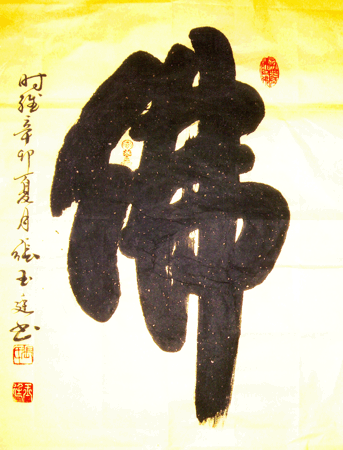 佛
时维辛卯夏月张玉廷书